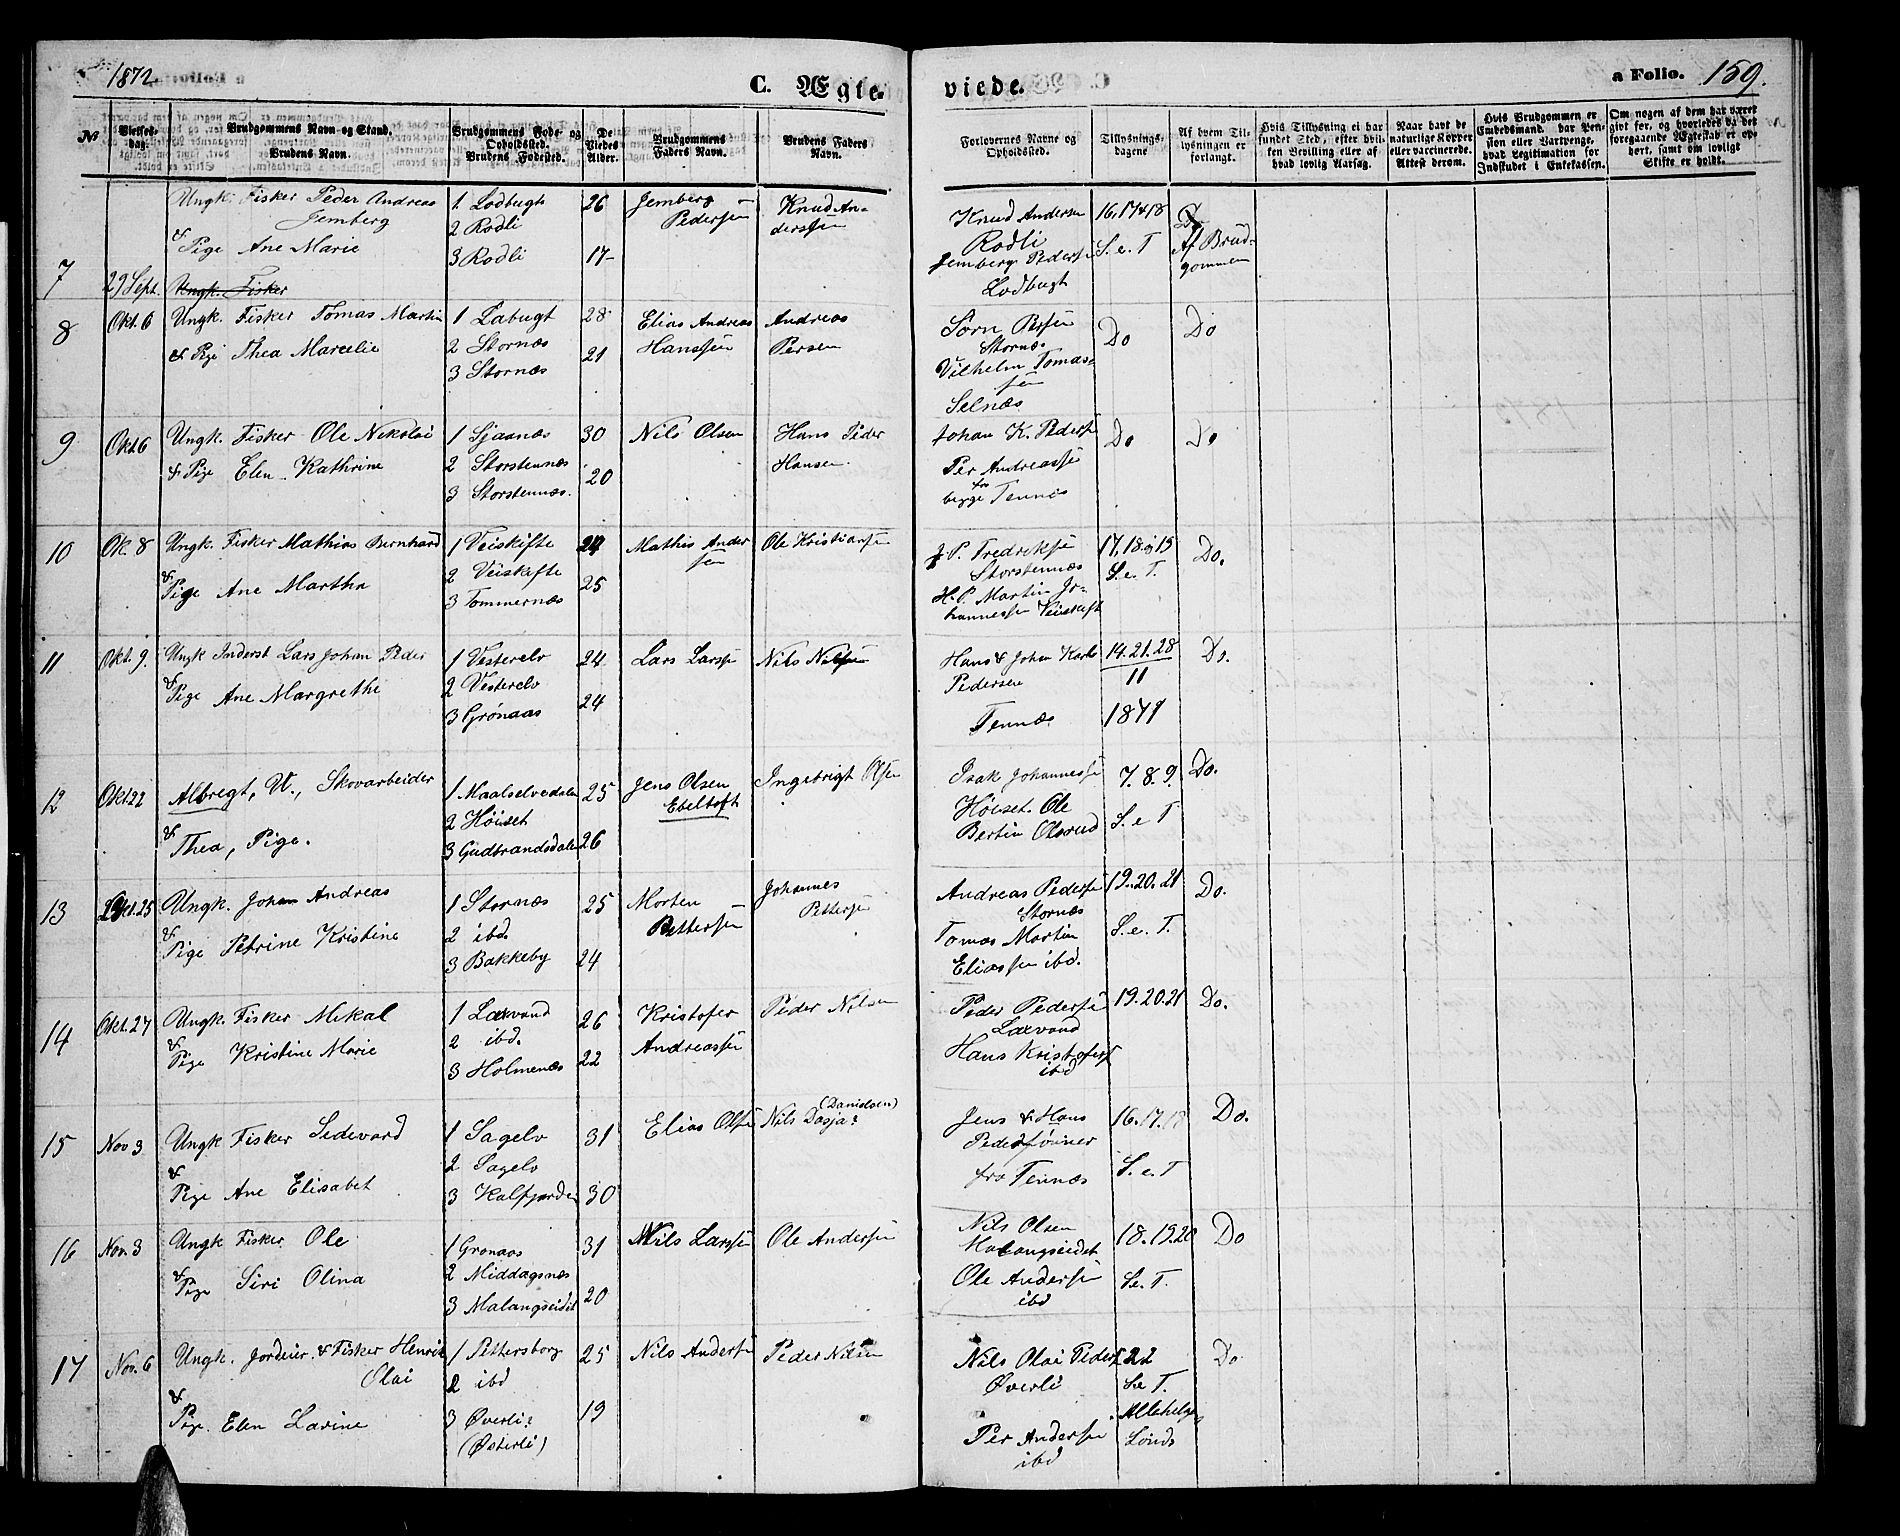 1872.
C. Ægte-
viede.
a Folio. 159.
No
Vielses-dag.
Brudgommens Navn og Stand.
Brudens Navn.
Brudgommens Føde- og Opholdssted.
Brudens Fødested.
De Viedes Alder.
Brudgommens Faders Navn.
Brudens Faders Navn.
Forlovernes Navne og Opholdssted.
Tillysnings-dagene
Af hvem Tillysningen er forlangt.
Hvis Tillysning ei har fundet Sted, efter hvilken Bevilling eller af hvad lovlig Aarsag.
Naar havt de naturlige Kopper eller vaccinerede. Attest derom.
Hvis Brudgommen er Embedsmand, har Pension eller Vartpenge, hvad Legitimation for Indskudet i Enkekassen.
Om nogen af dem har været gift før, og hvorledes da det foregaaende Ægteskab er ophørt, samt om lovligt Skifte er holdt.
7 29 Sept.
Ungk. Fisker Peder Andreas
Jemberg
& Pige Ane Marie
Ungk. Fisker
1 Lodbugt
2 Rodli
3 Rodli
26
17
Jemberg
Pedersen
Knud An-
derssen
Knud Andersen
Rodli
Jemberg Peders
Lodbugt
16, 17 & 18
S. e. T
Af Brud-
gommen
8 Okt. 6
Ungk. Fisker Tomas Martin
& Pige Thea Marcelie
1 Labugt
2 Stornæs
3 Stornæs
28
21
Elias Andreas
Hanssen
Andreas
Persen
Sørn Persen
Stornæs
Vilhelm Tomas-
sen
Selnæs
Do
Do
9 Okt 6
Ungk. Fisker Ole Nikolai
& Pige Elen Kathrine
1 Sjaanæs
2 Storstennæs
3 Storstennæs.
30
20
Nils Olsen
Hans Peder
Hansen.
Johan K. Peders
Per Andreassen
begge fra Tennes
Do
Do
10 Ok. 8
Ungk. Fisker Mathias Bernhard
& Pige Ane Martha
1 Veiskifte
2 Veiskifte
3 Tommernæs
24
25
Mathis Ander
sen
Ole Kristiansen
J. P. Fredriksen
Storstennæs
H. P. Martin Jo-
hannessen Veiskift
17, 18 og 19
S. e. T.
Do.
11 Okt. 9.
Ungk Inderst Lars Johan Peder
& Pige Ane Margrethe
1 Vesterelv
2 Vesterelv
3 Grønaas
24
24
Lars Larssen
Nils Nilsen
Hans & Johan Karl
Pedersen
Tennæs
14. 21. 28
11
1871
Do.
12 Okt 22
Albregt, U., Skovarbeider
& Thea, Pige.
1 Maalselvedalen
2 Høiset
3 Gudbrandsdalen
25
26
Jens Olsen
Ebeltoft
Ingebrigt Olsen
Isak Johannessen
Høiset. Ole
Bertin Olsrud
7. 8. 9.
S. e T
Do.
13 Okt. 25
Ungk. Johan Andreas
& Pige Petrine Kristine
1 Stornæs
2 ibd.
3 Bakkeby
25
24
Morten
Pettersen
Johannes
Pettersen
Andreas Pedersen
Stornæs
Tomas Martin
Eliassen ibd.
19. 20. 21
S. e. T.
Do.
14 Okt. 27
Ungk. Fisker Mikal
& Pige Kristine Marie
1 Laxvand
2 ibd.
3 Holmenæs
26
22
Kristofer
Andreassen
Peder Nilsen
Peder Pedersen
Laxvand
Hans Kristofers
ibd
19. 20. 21
Do.
15 Nov 3
Ungk Fisker Sedevard
& Pige Ane Elisabet
1 Sagelv
2 Sagelv
3 Kalfjorden
31
30
Elias Olsen
(Danielsen)
Nils Dasja?
Jens & Hans
Pedersønner
fra Tennæs
16. 17. 18
S. e. T
Do.
16 Nov. 3
Ungk Fisker Ole
& Pige Siri Olina
1 Grønaas
2 Middagsnæs
3 Malangseidet
31
20
Nils Larssen
Ole Andersen
Nils Olsen
Malangseidet
Ole Andersen
ibd
18. 19. 20
S.e. T.
Do
17 Nov. 6
Ungk. Jordeier & Fisker Henrik
Olai
& Pige. Elen Lavine
1 Pettersborg
2 ibd
3 Øverli?
(Østerli)
25
19
Nils Andersen
Peder Nilsen
Nils Olai Peders
Øverli
Per Andersen
ibd
22
S.e T.
Allehelgen
Lønds
Do